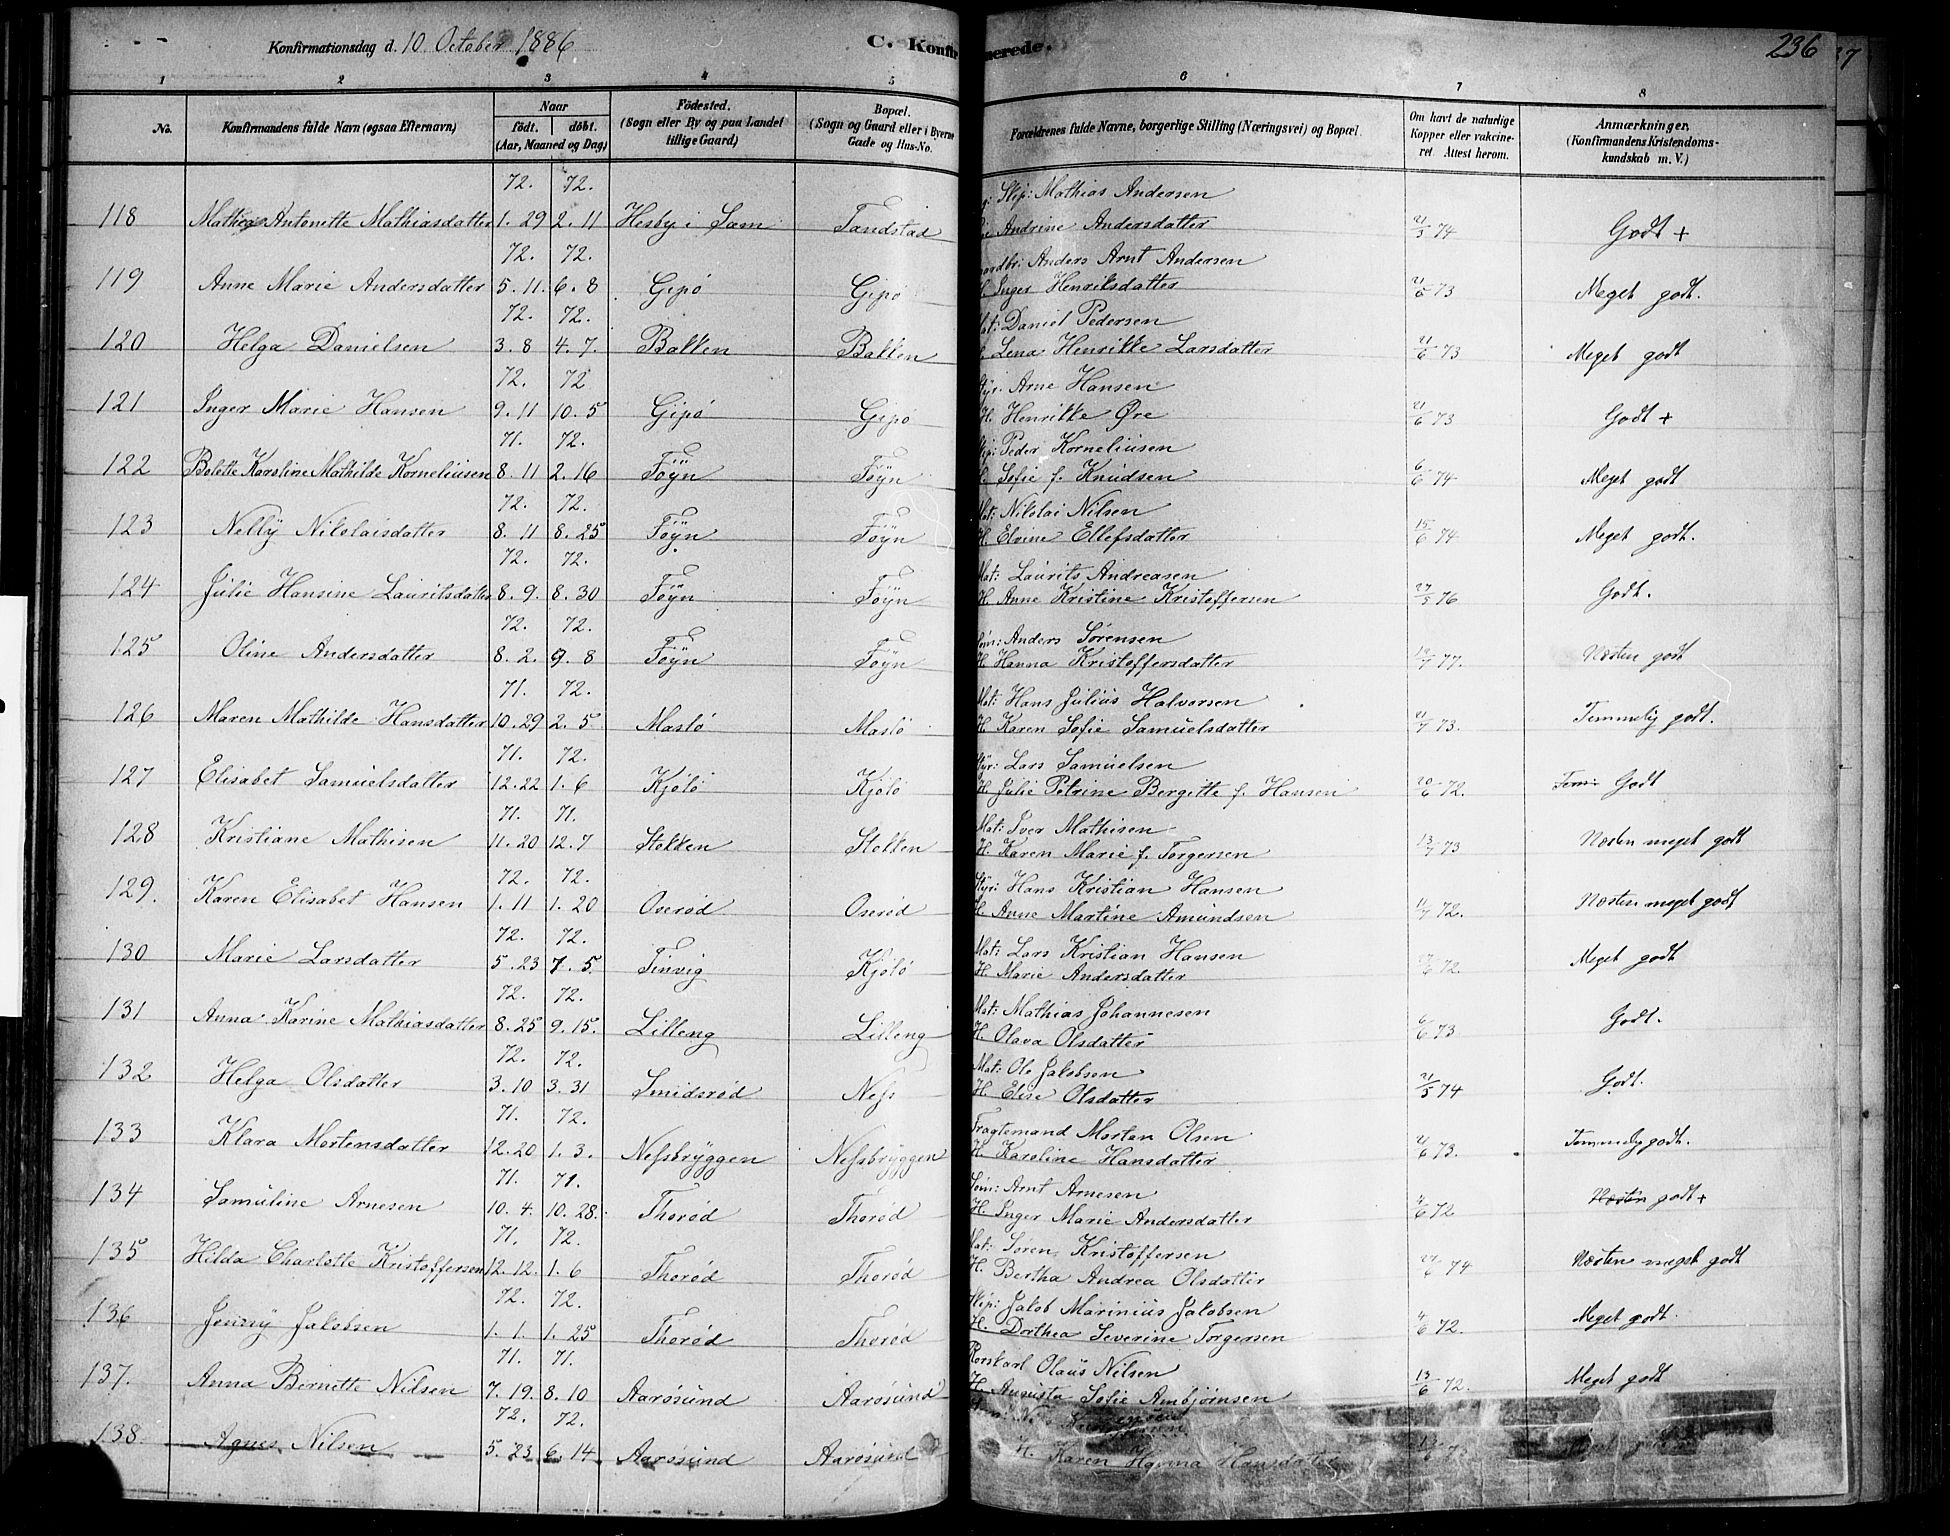 Konfirmationsdag d. 10 October 1886 C. Konfir merede. 236
1 2 3 4 5 6 7 8
No. Konfirmandens fulde Navn (ogsaa Efternavn) Naar födt. döbt. (Aar, Maaned og Dag) Födested. (Sogn eller By og paa Landet tillige Gaard) Bopæl. (Sogn og Gaard eller i Byerne Gade og Hus-No. Forældrenes fulde Navne, borgerlige Stilling (Næringsvei) og Bopæl. Om havt de naturlige Kopper eller vakcineret. Attest herom. Anmærkninger. (Konfirmandens Kristendomskundskab m. V.)
72. 72. Skp: Mathias Andersen
118 Mathea Antonette Mathiasdatter 1. 29 2. 11 Hesby i Sem Tandstad Andrine Andersdatter 21/5 74 Godt +
72. 72. Anders Arnt Andersen
119 Anne Marie Andersdatter 5. 11. 6. 8 Gipø Gipø H. Inger Henriksdatter 21/6 73 Meget godt.
72. 72. Mat: Daniel Pedersen
120 Helga Danielsen 3. 8 4. 7. Bakken Bakken Lena Henrikke Larsdatter 21/6 73 Meget godt
72. 72 Styr. Arne Hansen
121 Inger Marie Hansen 9. 11 10. 5 Gipø Gipø H. Henrikke Øre 21/6 73 Godt +
71. 72. Skp: Peder Korneliusen
122 Bolette Karoline Mathilde Korneliusen 8. 11 2. 16 Föyn Föyn Sofie f. Knudsen 6/6 74 Meget godt
72. 72. Mat: Nikolai Nilsen
123 Nelly Nikolaisdatter 8. 11 8. 25 Föyn Föyn H. Elvine Ellefsdatter 15/6 74 Meget godt.
72. 72. Mat: Laurits Andreasen
124 Julie Hansine Lauritsdatter 8. 9. 8. 30 Föyn Föyn H. Anne Kristine Kristoffersen 27/5 76 Godt.
72. 72. Söm: Anders Sörensen
125 Oline Andersdatter 8. 2. 9. 8 Föyn Föyn H. Hanna Kristoffersdatter 77. Næsten godt
71. 72. Mat: Hans Julius Halvorsen
126 Maren Mathilde Hansdatter 10. 29 2. 5. Maslö Maslö H. Karen Sofie Samuelsdatter 21/7 73. Temmelig godt.
71. 72. Styr: Lars Samuelsen
127 Elisabet Samuelsdatter 12. 22 1. 6 Kjölö Kjölö H. Julie Petrine Bergitte f. Hansen 20/6 72. Tem Godt
71. 71. Mat: Iver Mathisen
128 Kristiane Mathisen 11. 20 12. 7 Stokken Stokken H. Karen Marie f. Torgersen 13/7 73 Næsten meget godt
72. 72. Styr: Hans Kristian Hansen
129. Karen Elisabet Hansen 1. 11 1. 20 Oserød Oserød H. Anne Martine Amundsen 11/7 72. Næsten meget godt
72. 72. Mat: Lars Kristian Hansen
130 Marie Larsdatter 5. 23 7. 5. Finvig Kjölö H. Marie Andersdatter 72. Meget godt
72. 72. Mat: Mathias Johannesen
131 Anna Karine Mathiasdatter 8. 25 9. 15. Lilleng Lilleng H. Olava Olsdatter 6/6 73 Godt.
72. 72. Mat: Ole Jakobsen
132 Helga Olsdatter 3. 10 3. 31 Smidsrød Nefs H. Elise Olsdatter 21/5 74 Godt.
71. 72. Fragtemand Morten Olsen
133 Klara Mortensdatter 12. 20 1. 3. Nefsbryggen Nefsbryggen H. Karoline Hansdatter 21/6 73. Temmelig godt.
71. 71. Söm: Arnt Arnesen
134 Samuline Arnesen 10. 4. 10. 28. Thorød Thorød H. Inger Marie Andersdatter 72 Næsten godt +
71. 72. Mat: Sören Kristoffersen
135 Hilda Charlotte Kristoffersen 12. 12. 1. 6 Thorød Thorød H. Bertha Andrea Olsdatter 74 Næsten meget godt
72. 72. Skp: Jakob Marinius Jakobsen
136 Jenny Jakobsen 1. 1. 1. 25 Thorød Thorød H. Dorthea Severine Torgersen 72. Meget godt.
71. 71. Olaus Nilsen
137. Anna Bernette Nilsen 7. 19. 8. 10 Aarøsund Aarøsund H. Augusta Sofie Ambjørnsen 13/6 72. Meget godt
72. 72.
138. Agnes Nilsen 5. 23 6. 14 Aarøsund Aarøsund H. Karen Hanna Hansdatter